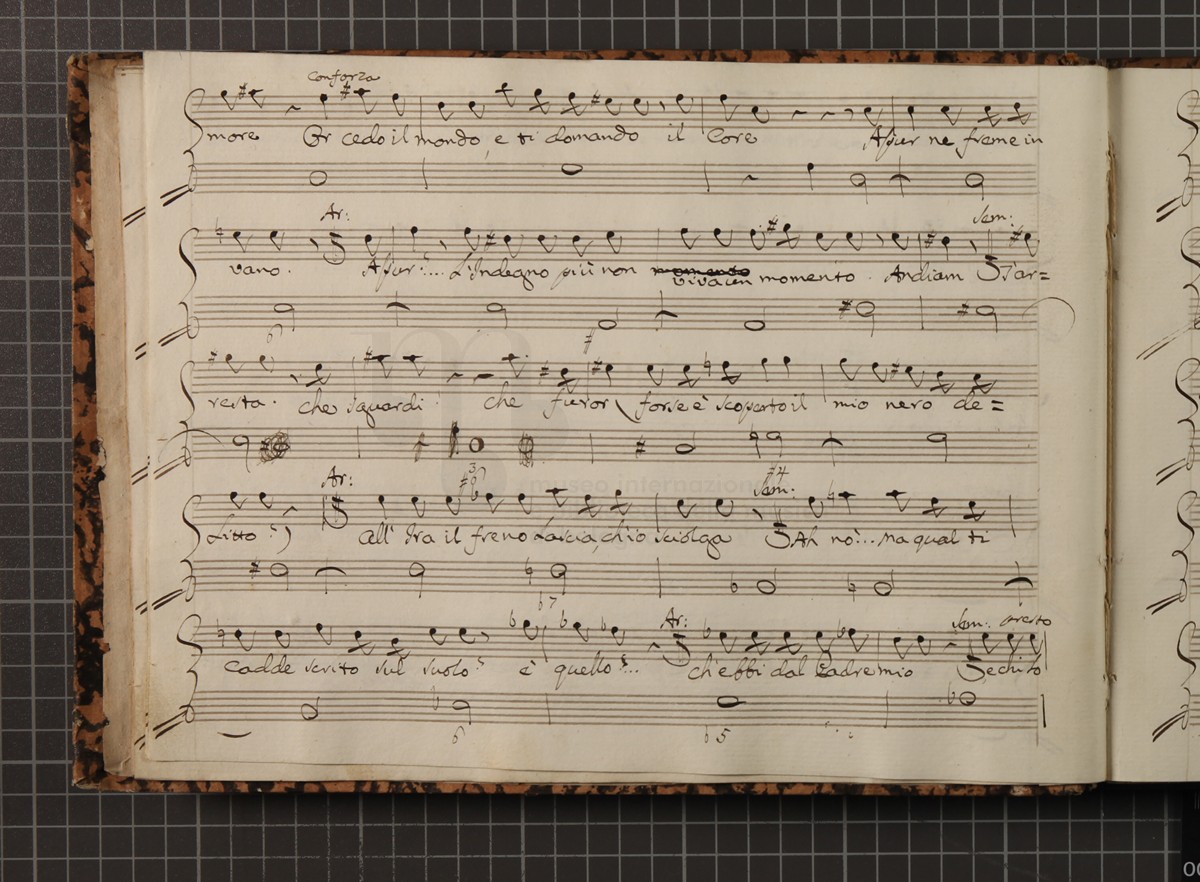 Con forza
more Or cedo il mondo, e ti domando il Core Assur ne freme in
Ar: Sem:
vano. Assur?.... L'Indegno più non viva un momento. Andiam T'ar=
resta. che sguardi! che furor! forse è scoperto il mio nero de=
Ar: Sem:
litto?) All' Ira il freno Lascia, ch'io sciolga Ah nò!... ma qual ti
museo internazionale
7
Ar: Sem: presto
cadde scrito sul suolo? è quello?... ch'ebbi dal Padre mio Sechito
6 5